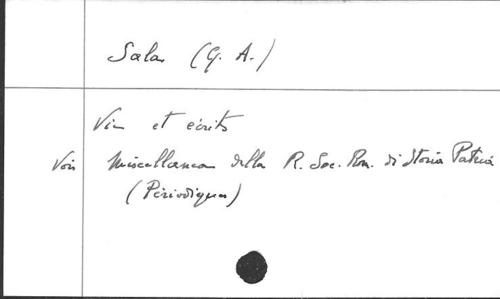 Sala (G. A.)
Vie et écrits
Voir Miscellanea della R. Soc. Rom. di Storia Patria
(Périodiques)